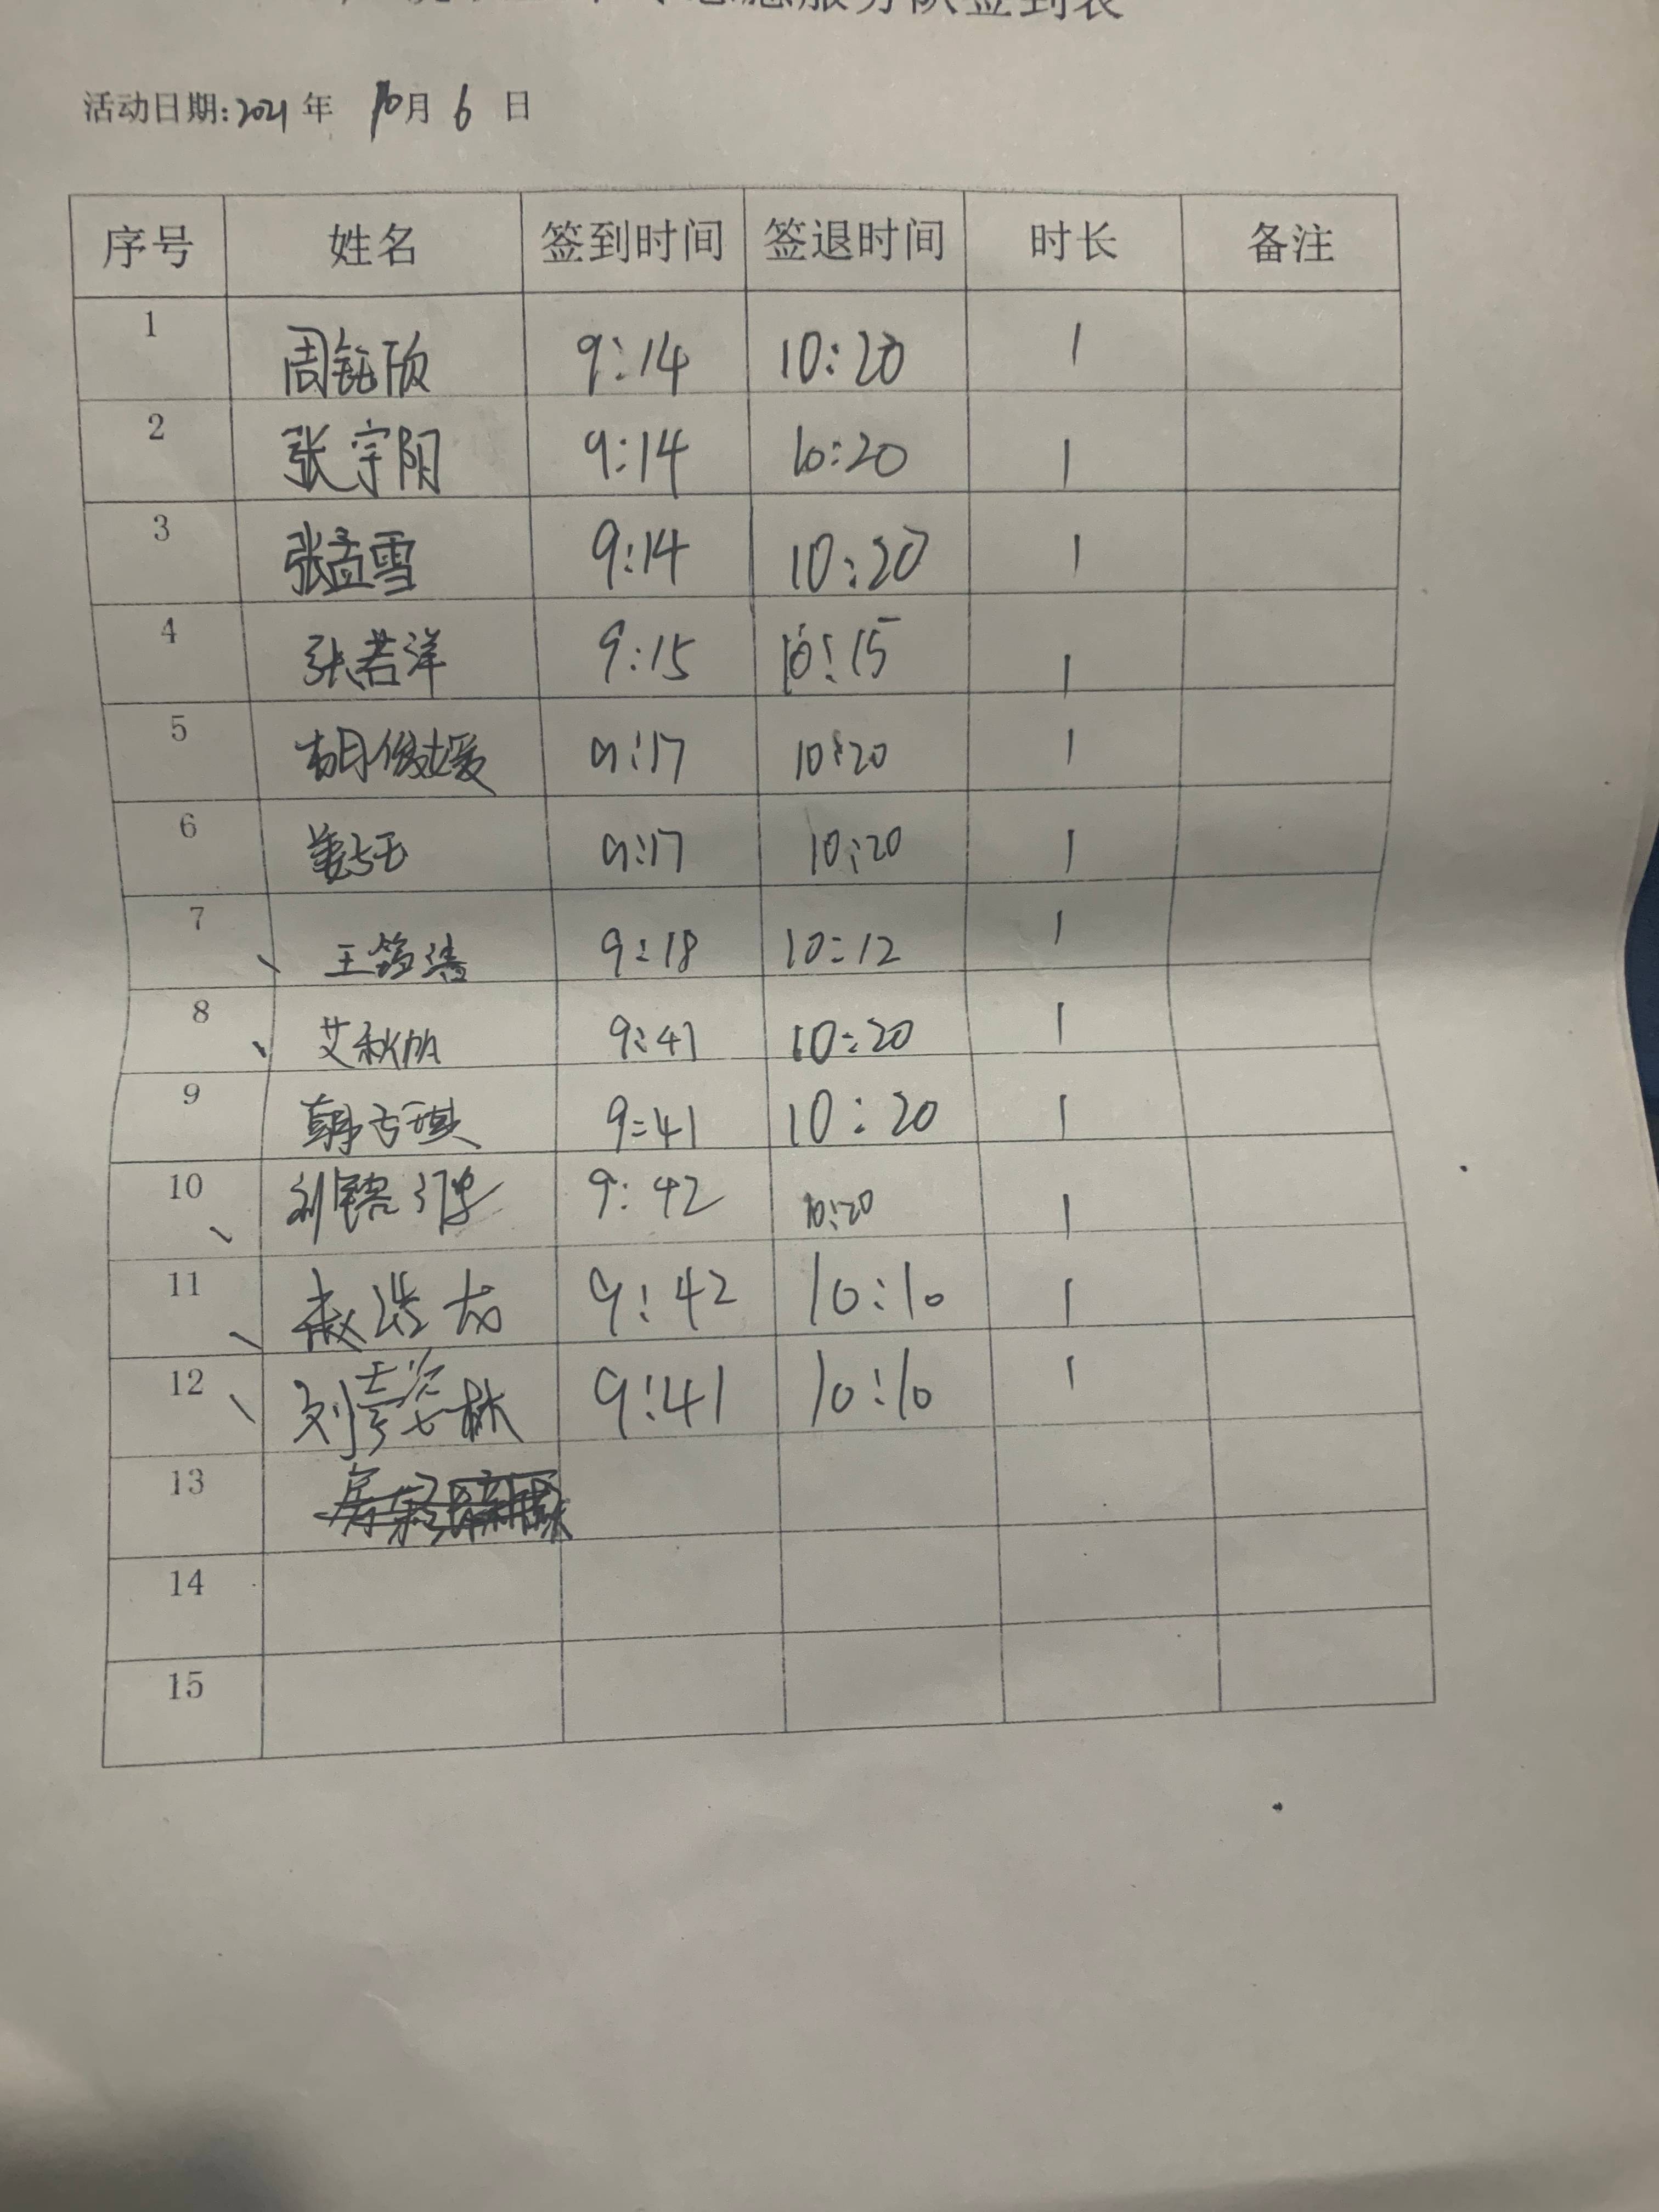 志愿服务队签到表
活动日期:2021年 10月 6 日
序号 姓名 签到时间 签退时间 时长 备注
1 周钰欣 9:14 10:20 1
2 张宇阳 9:14 10:20 1
3 张孟雪 9:14 10:20 1
4 张若洋 9:15 10:15 1
5 胡俊媛 9:17 10:20 1
6 9:17 10:20 1
7 王筠 9:18 10:12 1
8 艾秋帆 9:41 10:20 1
9 9:41 10:20 1
10 刘 9:42 10:20 1
11 赵浩龙 9:42 10:10 1
12 刘彭姿林 9:41 10:10 1
13
14
15